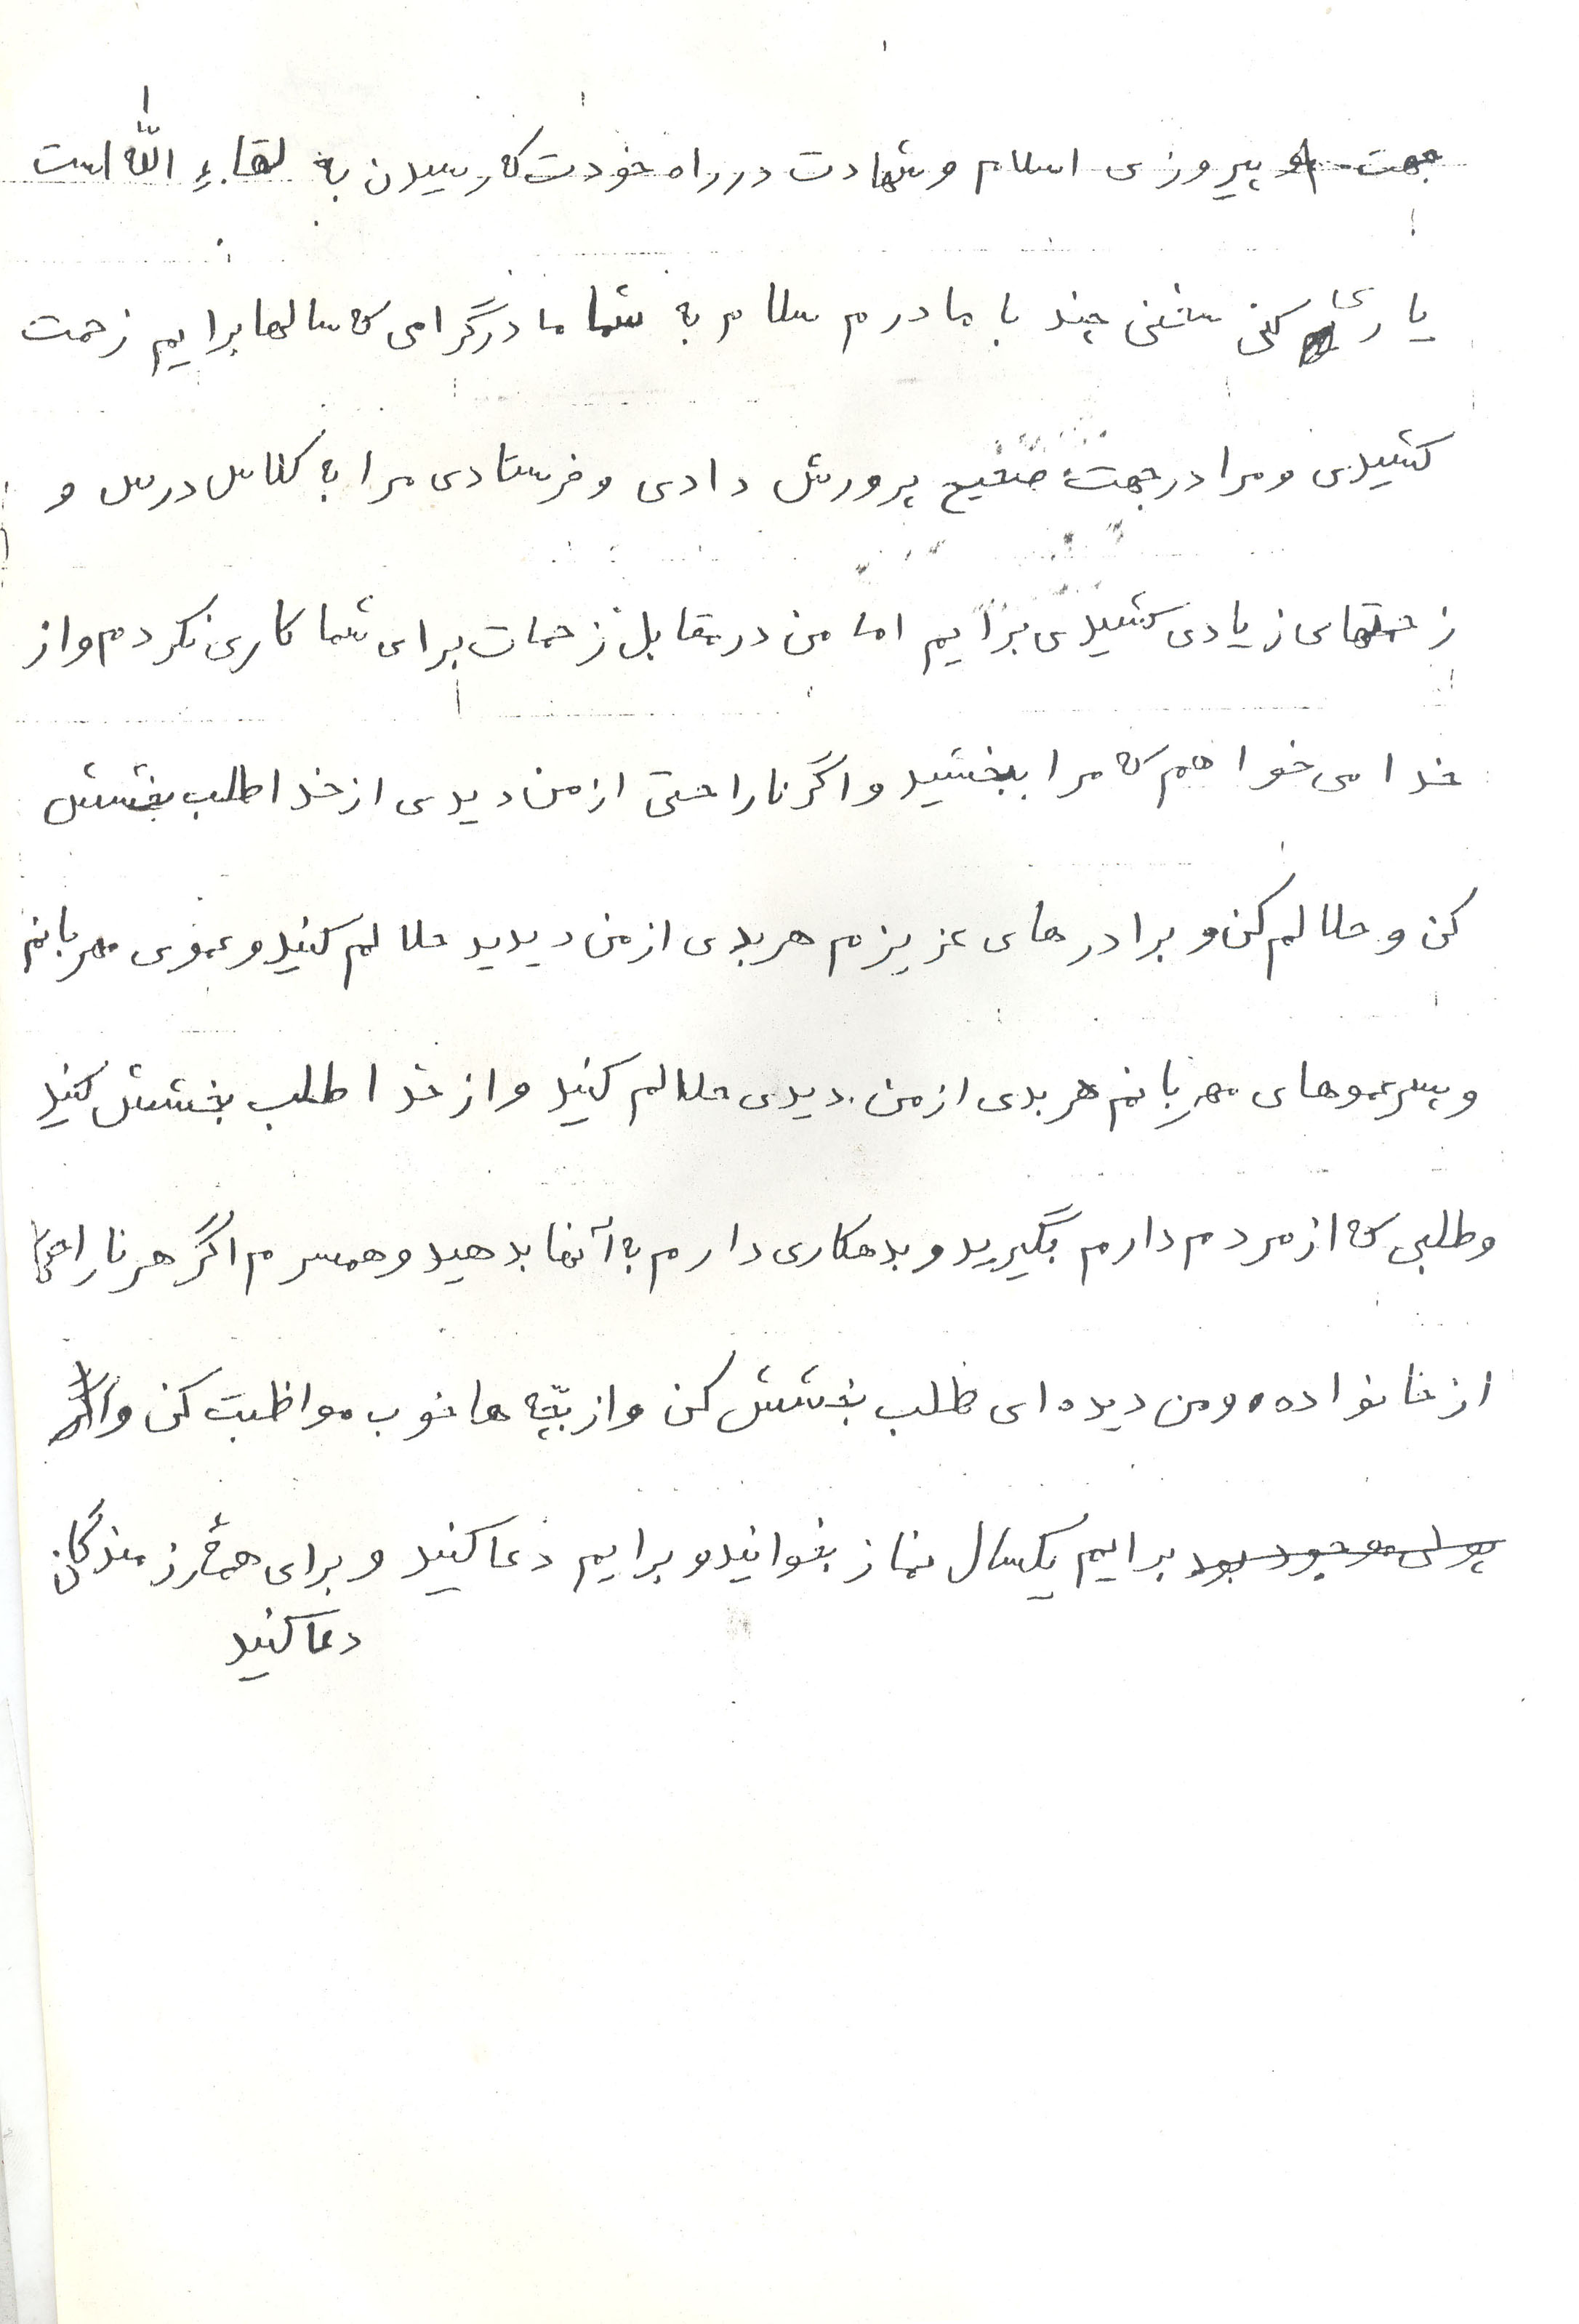 جهت پیروزی اسلام و شهادت در راه خودت که رسیدن به لقاءِ اللّه است
یاری کنی سخنی چند با مادرم سلام به شما مادر گرامی که سالها برایم زحمت
کشیدی و مرا در جهت صحیح پرورش دادی و فرستادی مرا به کلاس درس و
زحمتهای زیادی کشیدی برایم اما من در مقابل زحمات برای شما کاری نکردم و از
خدا می خواهم که مرا ببخشید و اگر ناراحتی از من دیدی از خدا طلب بخشش
کن و حلالم کن و برادرهای عزیزم هر بدی از من دیدید حلالم کنید و عموی مهربانم
و پسرعموهای مهربانم هر بدی از من دیدی حلالم کنید و از خدا طلب بخشش کنید
و طلبی که از مردم دارم بگیرید و بدهکاری دارم به آنها بدهید و همسرم اگر هر ناراحتی
از خانواده و من دیده ای طلب بخشش کن و از بچّه ها خوب مواظبت کن و اگر
پولی موجود بود برایم یکسال نماز بخوانید و برایم دعا کنید و برای همۀ رزمندگان
دعا کنید